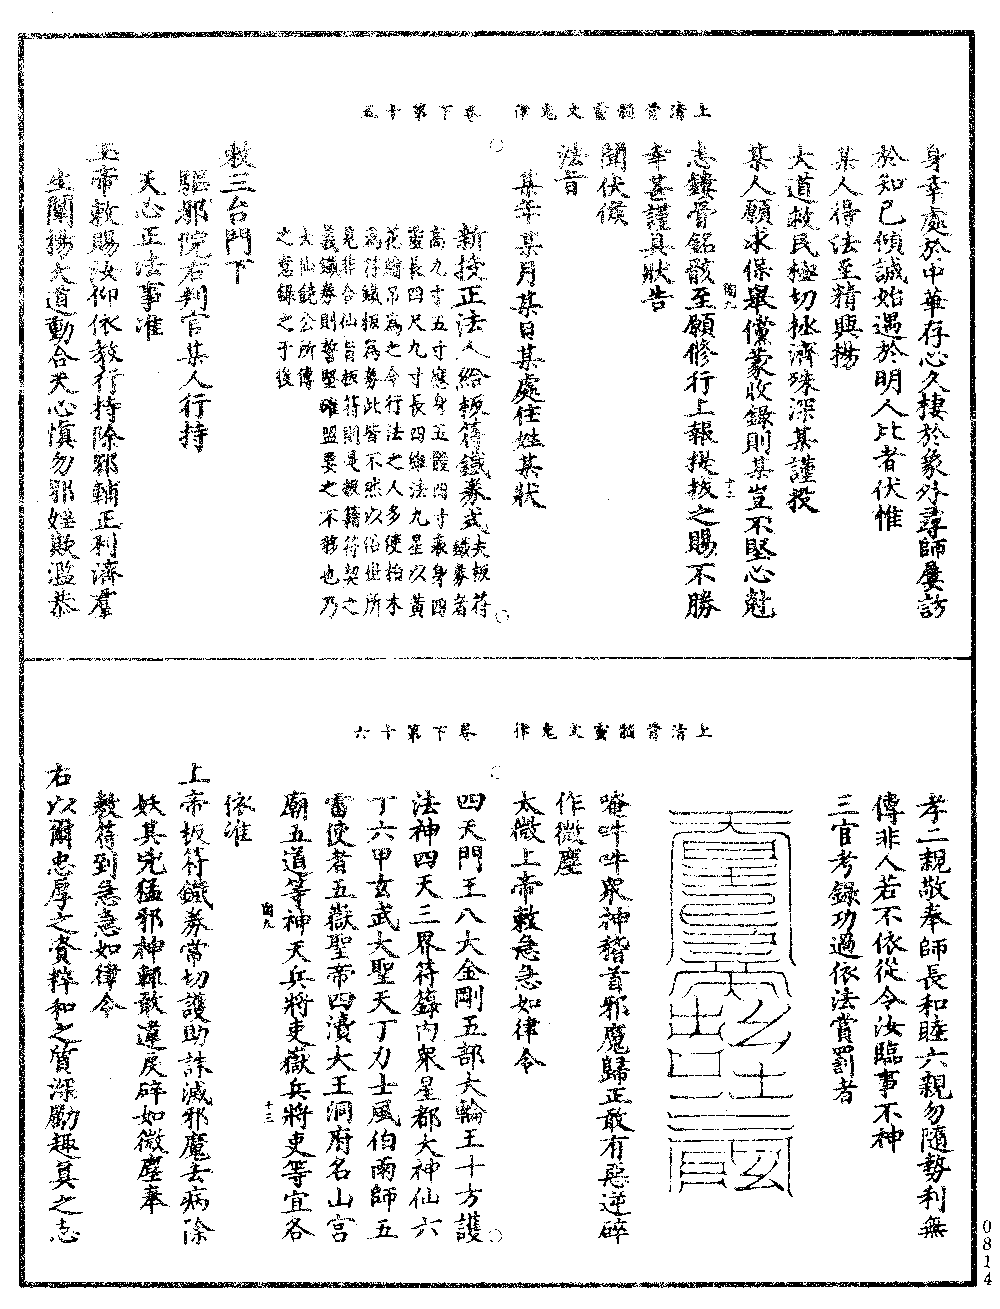 上清骨髓靈文鬼律　卷下第十五
身幸處於中華存心久棲於象外尋師屢訪
於知已傾誠始遇於明人比者伏惟
某人得法至精興揚
大道救民極切拯濟殊深某謹投
某人願求保舉儻蒙收錄則某豈不堅心尅
志鏤骨銘骸至願修行上報提拔之賜不勝
幸甚謹具狀告
聞伏候
法旨
某年某月某日某處住姓某狀
新授正法人給板符鐵券式夫板符鐵券者
高九寸五分應身五臟四寸表身四
靈長四尺九寸長四維法九星以黃
花繪吊為之今行法之人多使柏木
為符鐵板為券此皆不然以俗世所
見非合仙旨板符則是板籍符契之
義鐵券則誓堅確盟要之不移也乃
太仙饒公所傳
之意錄之于後
敕三台門下
驅邪院右判官某人行持
天心正法事准
上帝敕賜汝仰依教行持除邪輔正利濟羣
生闡揚大道動合天心慎勿邪婬欺濫恭
上清骨髓靈文鬼律　卷下第十六
孝二親敬奉師長和睦六親勿隨勢利無
傳非人若不依從令汝臨事不神
三官考錄功過依法賞罰者
唵吽吽衆神稽首邪魔歸正敢有惡逆碎
作微塵
太微上帝敕急急如律令
四天門王八大金剛五部大輪王十方護
法神四天三界符籙內衆星都大神仙六
丁六甲玄武大聖天丁力士風伯雨師五
雷使者五嶽聖帝四瀆大王洞府名山宮
廟五道等神天兵將吏嶽兵將吏等宜各
依准
上帝板符鐵券常切護助誅滅邪魔去病除
妖其兇猛邪神輒敢違戾碎如微塵奉
敕符到急急如律令
右以爾忠厚之資粹和之質深勵趣真之志
0814